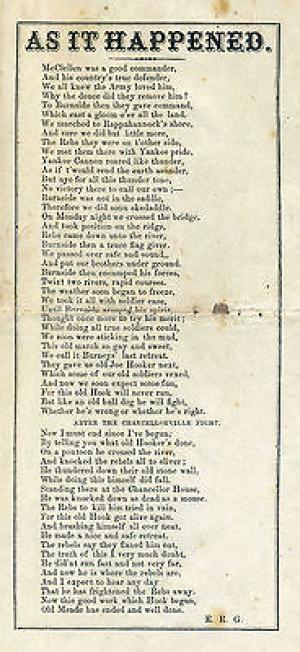 AS IT HAPPENED.
McClellen was a good commander,
And his country's true defender,
We all know the Army loved him,
Why the deuce did they remove him?
To Burnside then they gave command,
Which cast a gloom o'er all the land.
We marched to Rappahannock's shore,
And sure we did but little more,
The Rebs they were on t'other side,
We met them there with Yankee pride.
Yankee Cannon roared like thunder,
As if t'would rend the earth asunder,
But aye for all this thunder tone,
No victory there to call our own ;—
Burnside was not in the saddle,
Therefore we did soon skedaddle.
On Monday night we crossed the bridge,
And took position on the ridge,
Rebs came down unto the river,
Burnside then a truce flag giver.
We passed over safe and sound,
And put our brothers under ground.
Burnside then encamped his forces,
Twixt two rivers, rapid courses.
The weather soon began to freeze,
We took it all with soldier ease,
Until Burnside
Thought once more to try his merit ;
While doing all true soldiers could,
We soon were sticking in the mud,
This old march so gay and sweet,
We call it Burneys' last retreat.
They gave us old Joe Hooker next,
Which some of our old soldiers vexed,
And now we soon expect some fun,
For this old Hook will never run,
But like an old bull dog he will fight,
Whether he's wrong or whether he's right.
AFTER THE CHANCELLORSVILLE FIGHT.
Now I must end since I've begun,
By telling you what old Hooker's done,
On a pontoon he crossed the river,
And knocked the rebels all to sliver ;
He thundered down their old stone wall,
While doing this himself did fall.
Standing there at the Chancellor House,
He was knocked down as dead as a mouse.
The Rebs to kill him tried in vain,
For this old Hook got alive again.
And brushing himself all over neat,
He made a nice and safe retreat.
The rebels say they flaxed him out,
The truth of this I very much doubt,
He did'nt run fast and not very far,
And now he is where the rebels are,
And I expect to hear any day
That he has frightened the Rebs away.
Now this good work which Hook began,
Old Meade has ended and well done.
E. R. G.